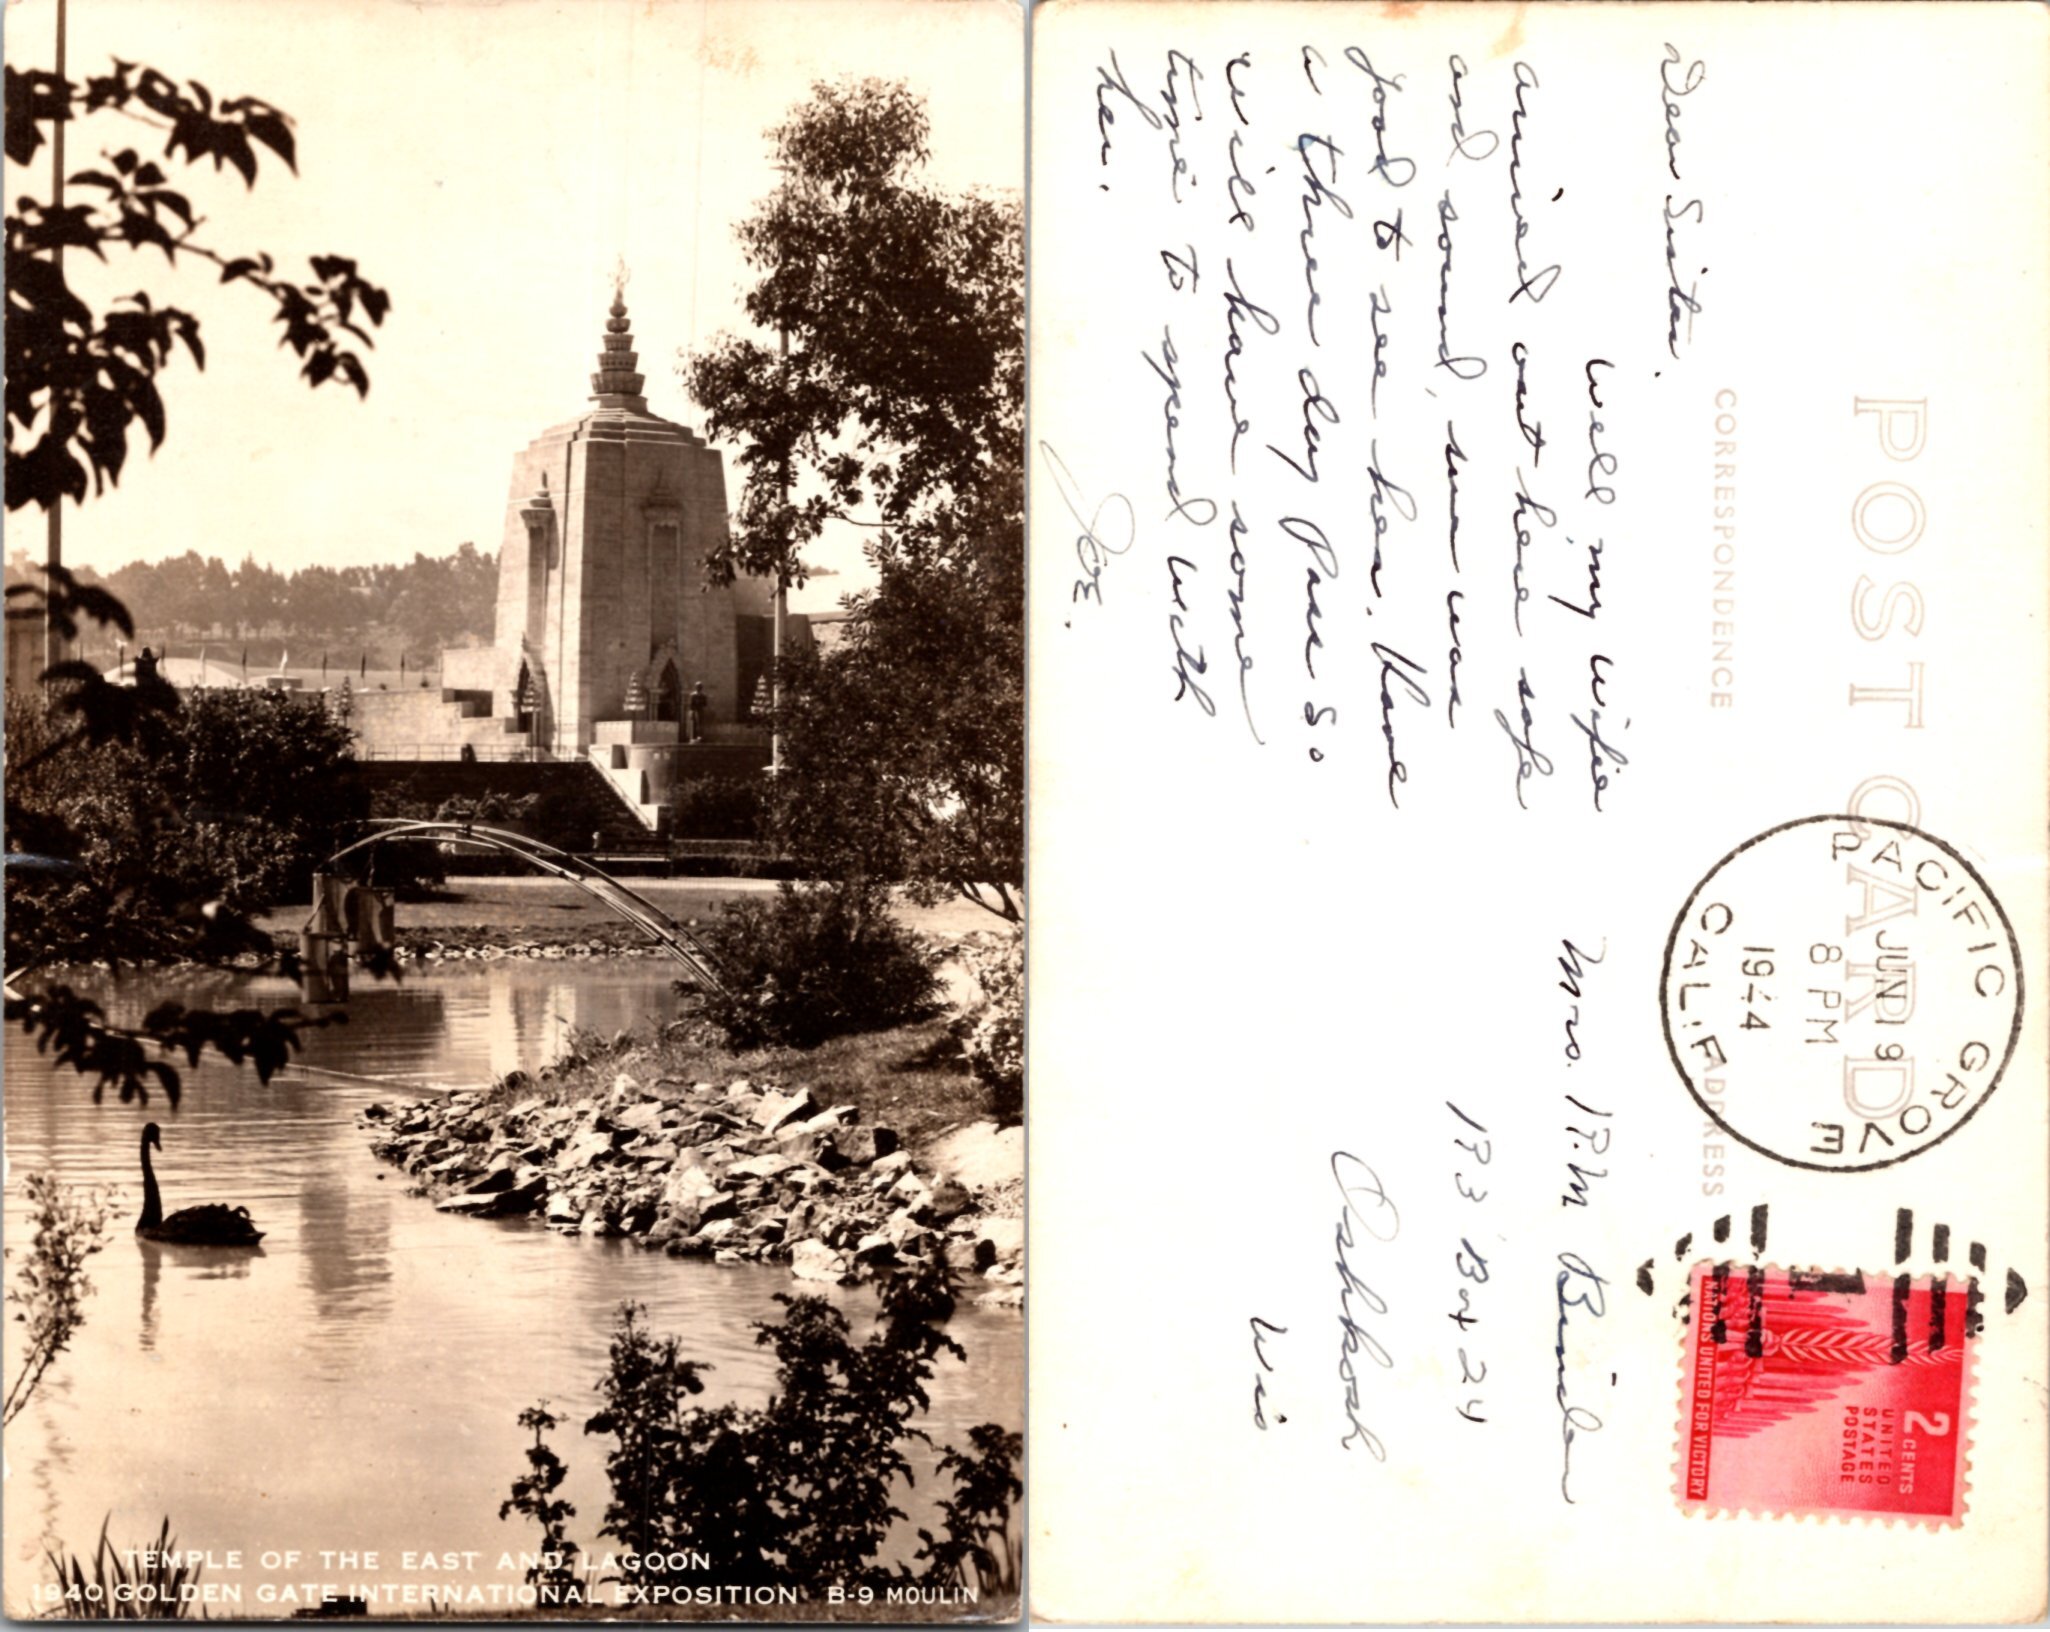 TEMPLE OF THE EAST AND LAGOON
1940 GOLDEN GATE INTERNATIONAL EXPOSITION B-9 MOULIN
POST CARD
CORRESPONDENCE
ADDRESS
Dear Sister.
Well, my wifie
arrived out here safe
and sound, sure was
good to see her. Have
a three day pass so
will have some
time to spend with
her.
Joe.
PACIFIC GROVE
JUN 19
8 PM
1944
CALIF.
2 CENTS
UNITED
STATES
POSTAGE
NATIONS UNITED FOR VICTORY
Mrs. R.M
R 3 Box 24
Oshkosh
Wis